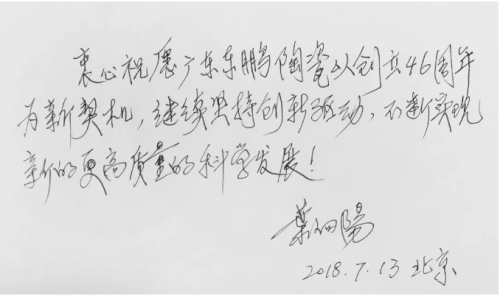 衷心祝愿广东东鹏陶瓷以创立46周年
为新契机，继续坚持创新驱动，不断实现
新的更高质量的科学发展！
葉向陽
2018.7.13 北京